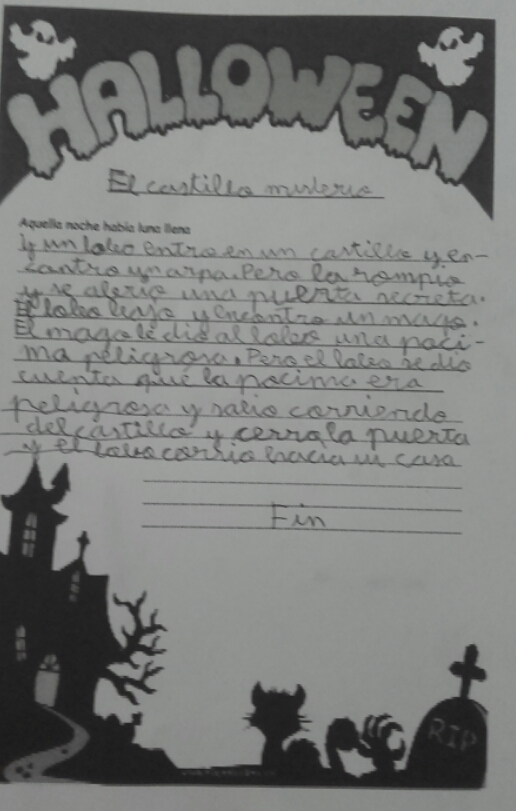 HALLOWEEN
El castillo misterio
Aquella noche había luna llena
y un lobo entro en un castillo y en-
contro un arpa. Pero la rompio
y se aberio una puerta secreta.
El lobo bajo y encontro un mago.
El mago le dio al lobo una poci-
ma peligrosa. Pero el lobo se dio
cuenta que la pocima era
peligrosa y salio corriendo
del castillo y cerro la puerta
y el lobo corrio hacia su casa
Fin
RIP